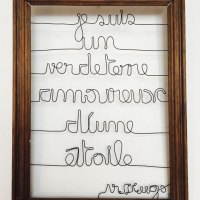 je suis
un
ver de terre
amoureux
d'une
étoile
v. hugo